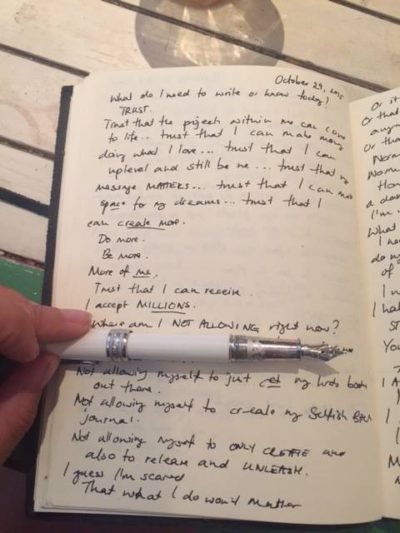 October 29, 2015
What do I need to write or know today?
TRUST.
Trust that the projects within me can come
to life... trust that I can make money
doing what I love... trust that I can
uplevel and still be me... trust that my
message MATTERS... trust that I can make
space for my dreams... trust that I
can create more.
Do more.
Be more.
More of me.
Trust that I can receive.
I accept MILLIONS.
Where am I NOT ALLOWING right now?
Not allowing myself to just get my book
out there.
Not allowing myself to create my Selfish
journal.
Not allowing myself to ONLY CREATE and
also to release and UNLEASH.
I guess I'm scared
That what I do won't matter
Or it
Or that
Or tha
Norm
Woma
a do
I'm
What
I ne
do m
of
I n
I ha
ST
You
I A
I
I
M